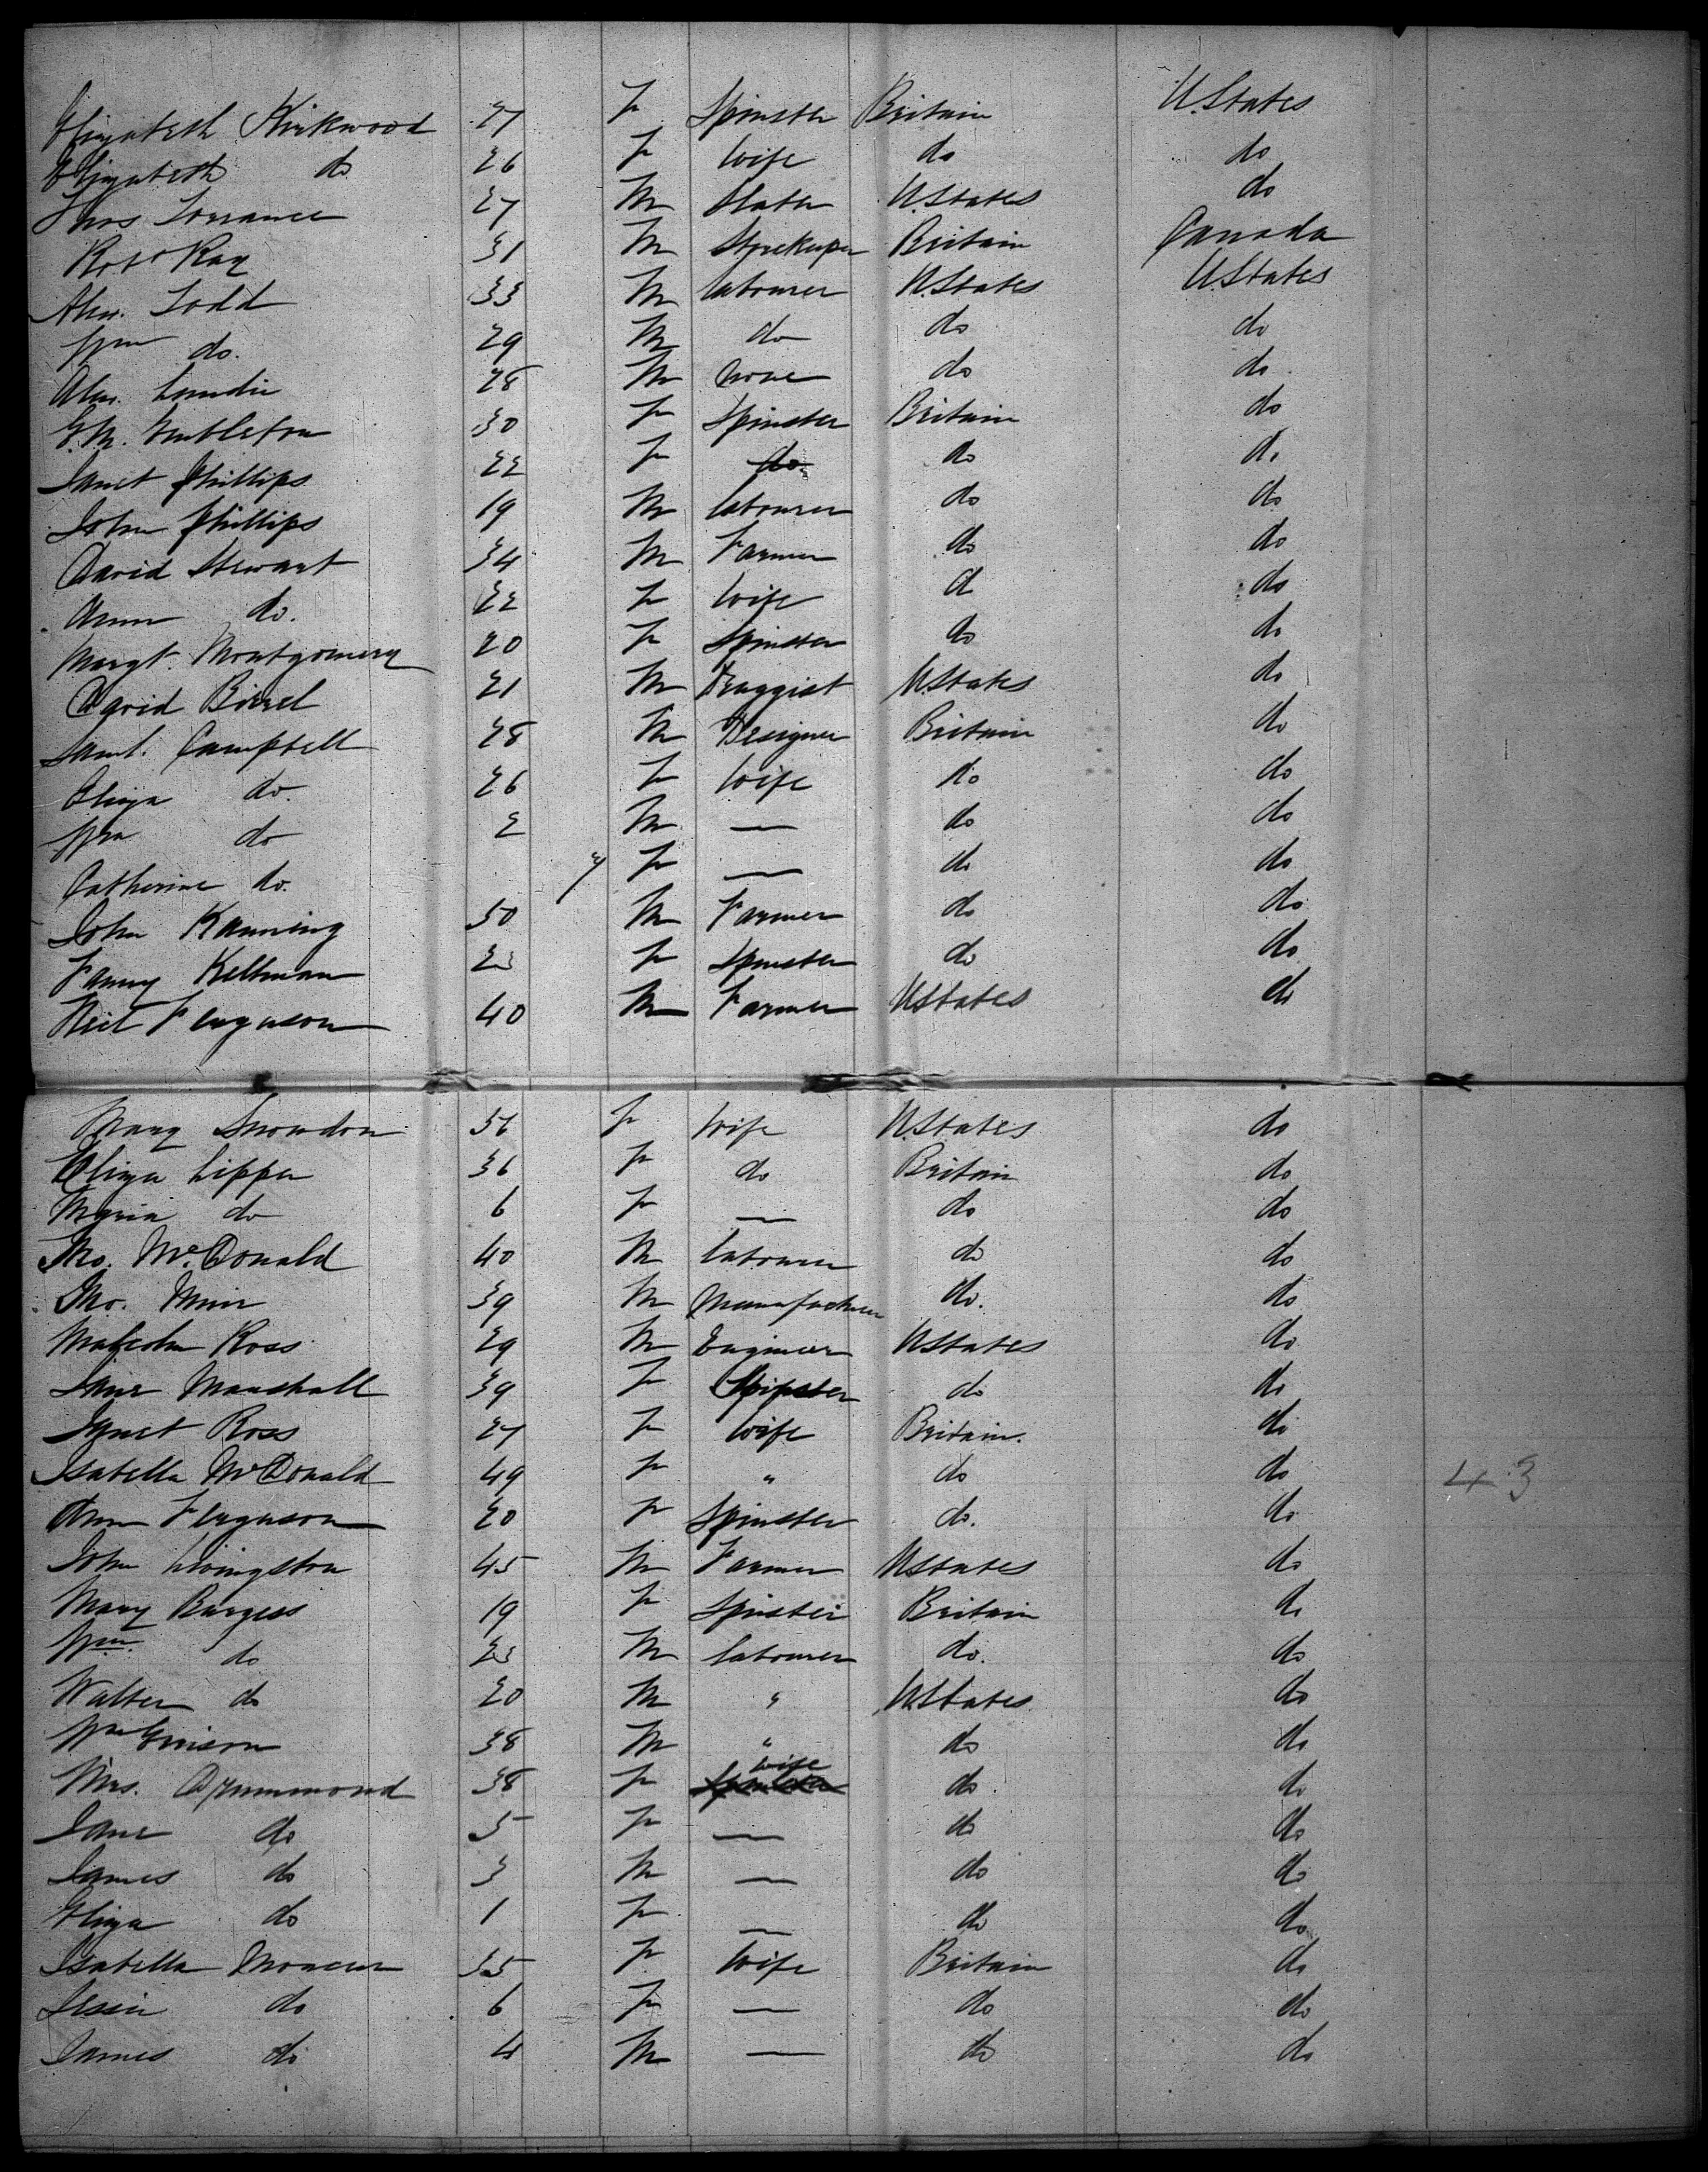 Elizabeth Kirkwood 27 F Spinster Britain U.States
Elizabeth do 26 F Wife do do
Thos Torrance 27 M Slater U.States do
Robt Ray 31 M Storekeeper Britain Canada
Alex. Todd 33 M labourer U.States U.States
Wm do. 29 M do do do
Alex. Lundie 28 M None do do
G.M. Embleton 30 F Spinster Britain do
Janet Phillips 22 F do. do do
John Phillips 19 M labourer do do
David Stewart 34 M Farmer do do
Ann do. 22 F Wife d do
Margt. Montgomery 20 F Spinster do do
David Birrel 21 M Druggist U.States do
Saml. Campbell 28 M Designer Britain do
Eliza do. 26 F Wife do do
Wm do 2 M — do do
Catherine do. 9 F — do do
John Kanning 50 M Farmer do do
Fanny Kellman 23 F Spinster do do
Neil Ferguson 40 M Farmer U.States do
Mary Snowdon 56 F Wife U.States do
Eliza Lipper 36 F do Britain do
Maria do 6 F — do do
Jno. McDonald 40 M labourer do do
Jno. Muir 39 M Manufacturer do. do
Malcolm Ross 29 M Engineer U.States do
Jane Marshall 39 F Spinster do do
Janet Ross 27 F Wife Britain. do
Isabella McDonald 49 F " do do 43
Ann Ferguson 20 F Spinster do. do
John Livingston 45 M Farmer U.States do
Mary Burgess 19 F Spinster Britain do
Wm. do 23 M labourer do. do
Walter do 20 M " U.States do
Wm 38 M " do do
Mrs. Drummond 38 F Wife do do
Jane do 5 F — do do
James do 3 M — do do
Eliza do 1 F — do do
Isabella Moncur 35 F Wife Britain do
Jessie do 6 F — do do
James do 4 M — do do